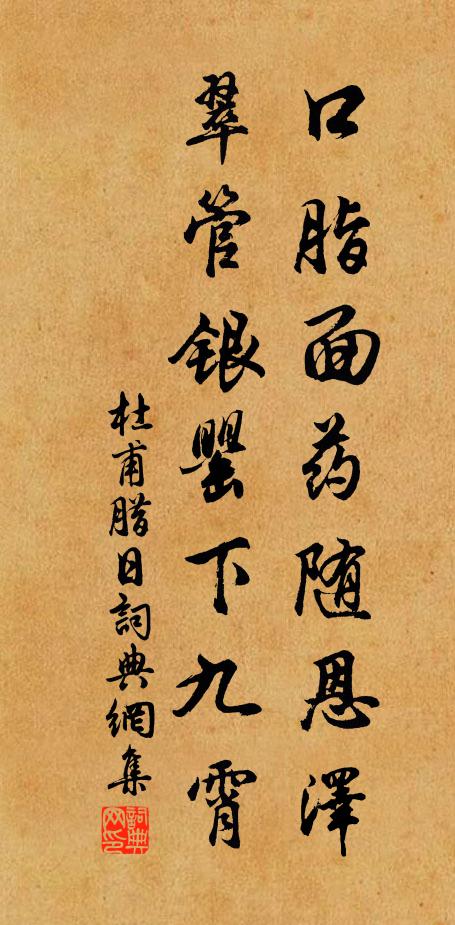 口脂面药随恩澤
翠管银罂下九霄
杜甫腊日詞典網集
詞典
网印